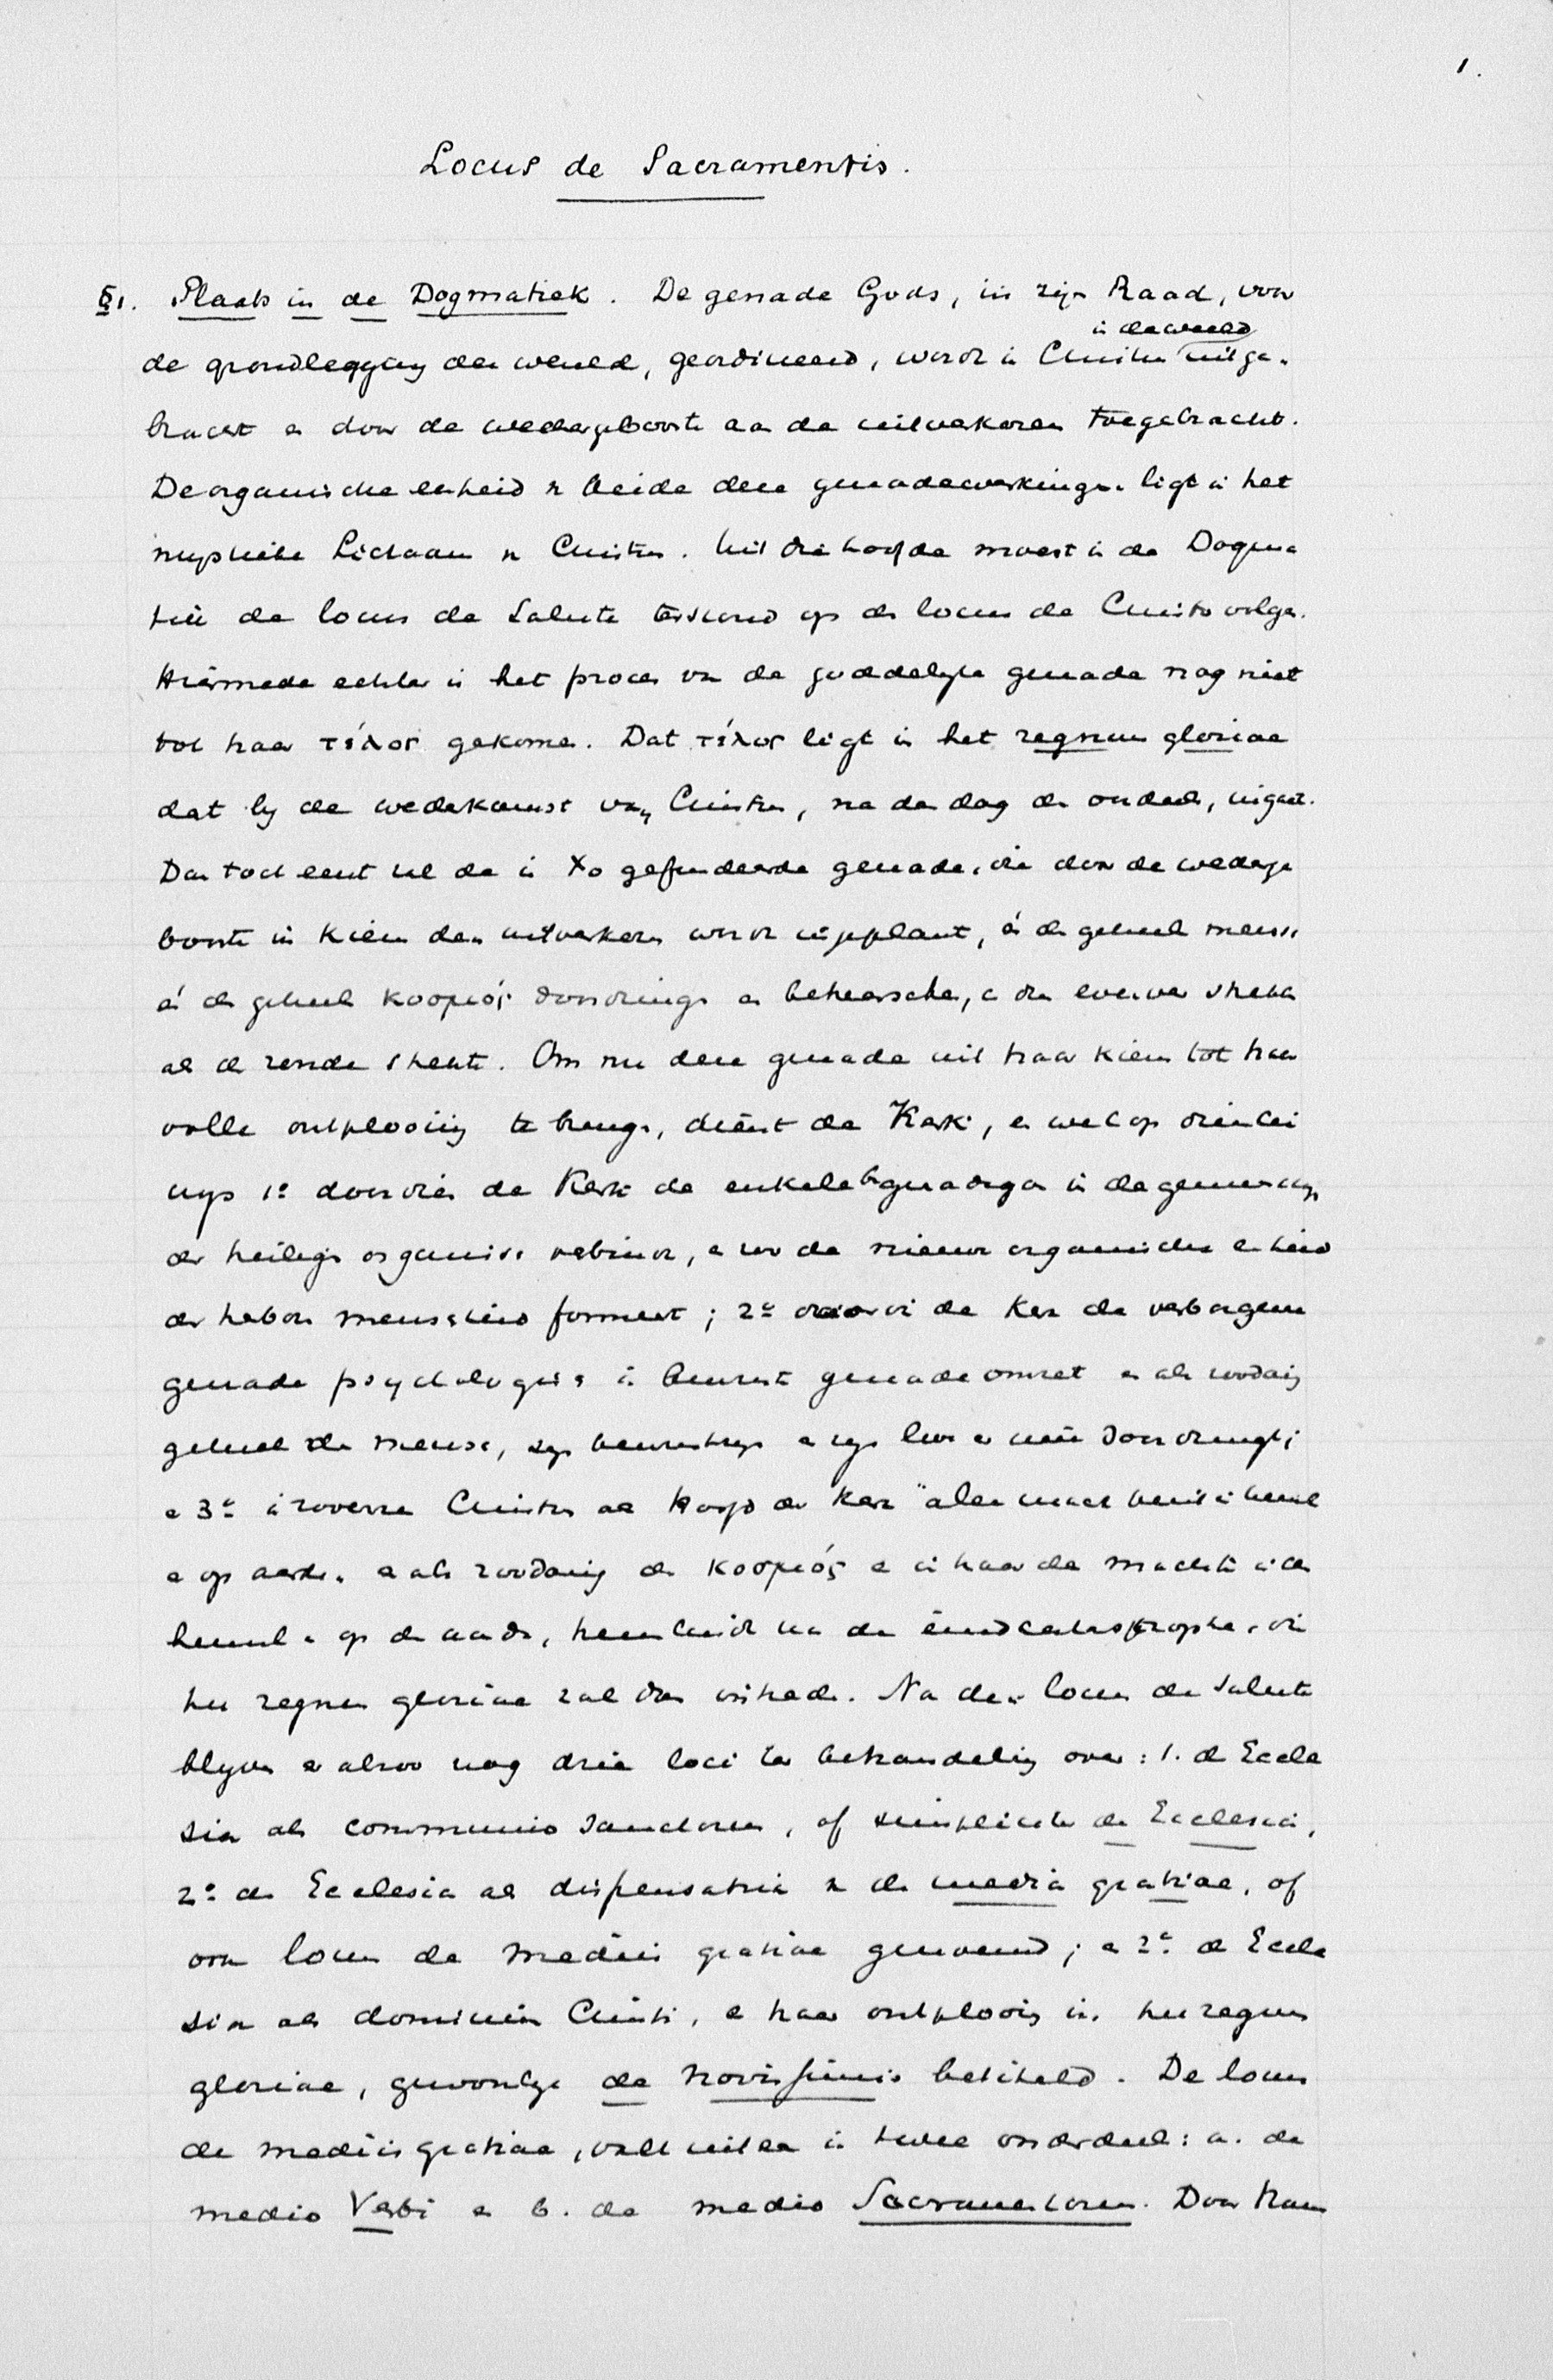 1.
Locus de Sacramentis.
§1. Plaats in de Dogmatiek. De genade Gods, in zijn Raad, voor
in de wereld
de grondlegging der wereld, geordineerd, wordt in Christus uitge-
bracht en door de wedergeboorte aan de uitverkoren toegebracht.
De organische eenheid v. beide deze genadewerkingen ligt in het
mystieke Lichaam v. Christus. Uit dien hoofde moest in de Dogma
tiek de locus de Salute terstond op de locus de Christo volgen.
Hiermede echter is het proces van de goddelijke genade nog niet
tot haar τέλος gekomen. Dat τέλος ligt in het regnum gloriae
dat bij de wederkomst van Christus, na den dag des oordeels, ingaat.
Dan toch eerst zal de in Xo gefundeerde genade, die door de wederge
boorte in kiem den uitverkoren wordt ingeplant, én de geheele mensch
én de geheele κοσμός doordringen en beheerschen, en die evenver strekken
als de zonde strekte. Om nu deze genade uit haar kiem tot haar
volle ontplooiing te brengen, dient de Kerk, en wel op drieërlei
wijs 1o doordien de Kerk de enkele begenadigden in de gemeenschap
der heiligen organisch verbindt, en zoo de nieuwe organische eenheid
der herboren menschheid formeert; 2o doordien de Kerk de verborgene
genade psychologisch in bewuste genade omzet en als zoodanig
geheel den mensch, zijn bewustzijn en zijn leven er mee doordringt;
en 3o in zooverre Christus als Hoofd der Kerk "alle macht bezit in hemel
en op aarde" en als zoodanig de κοσμός en in haar de machten in den
hemel en op de aarde, heenleidt naar de eindcatastrophe, die
het regnum gloriae zal doen intreden. Na den locus de Salute
blijven er alzoo nog drie loci ter behandeling over: 1. de Eccle
sia als communio sanctorum, of simpliciter de Ecclesia,
2o de Ecclesia als dispensatrix v. de media gratiae, of
ook locus de mediis gratiae genoemd; en 3o de Eccle
sia als dominium Christi, en haar ontplooiing in het regnum
gloriae, gewoonlijk de novissimis betiteld. De locus
de mediis gratiae, valt uiteen in twee onderdeelen: a. de
medio Verbi en b. de medio Sacramentorum. Door haar